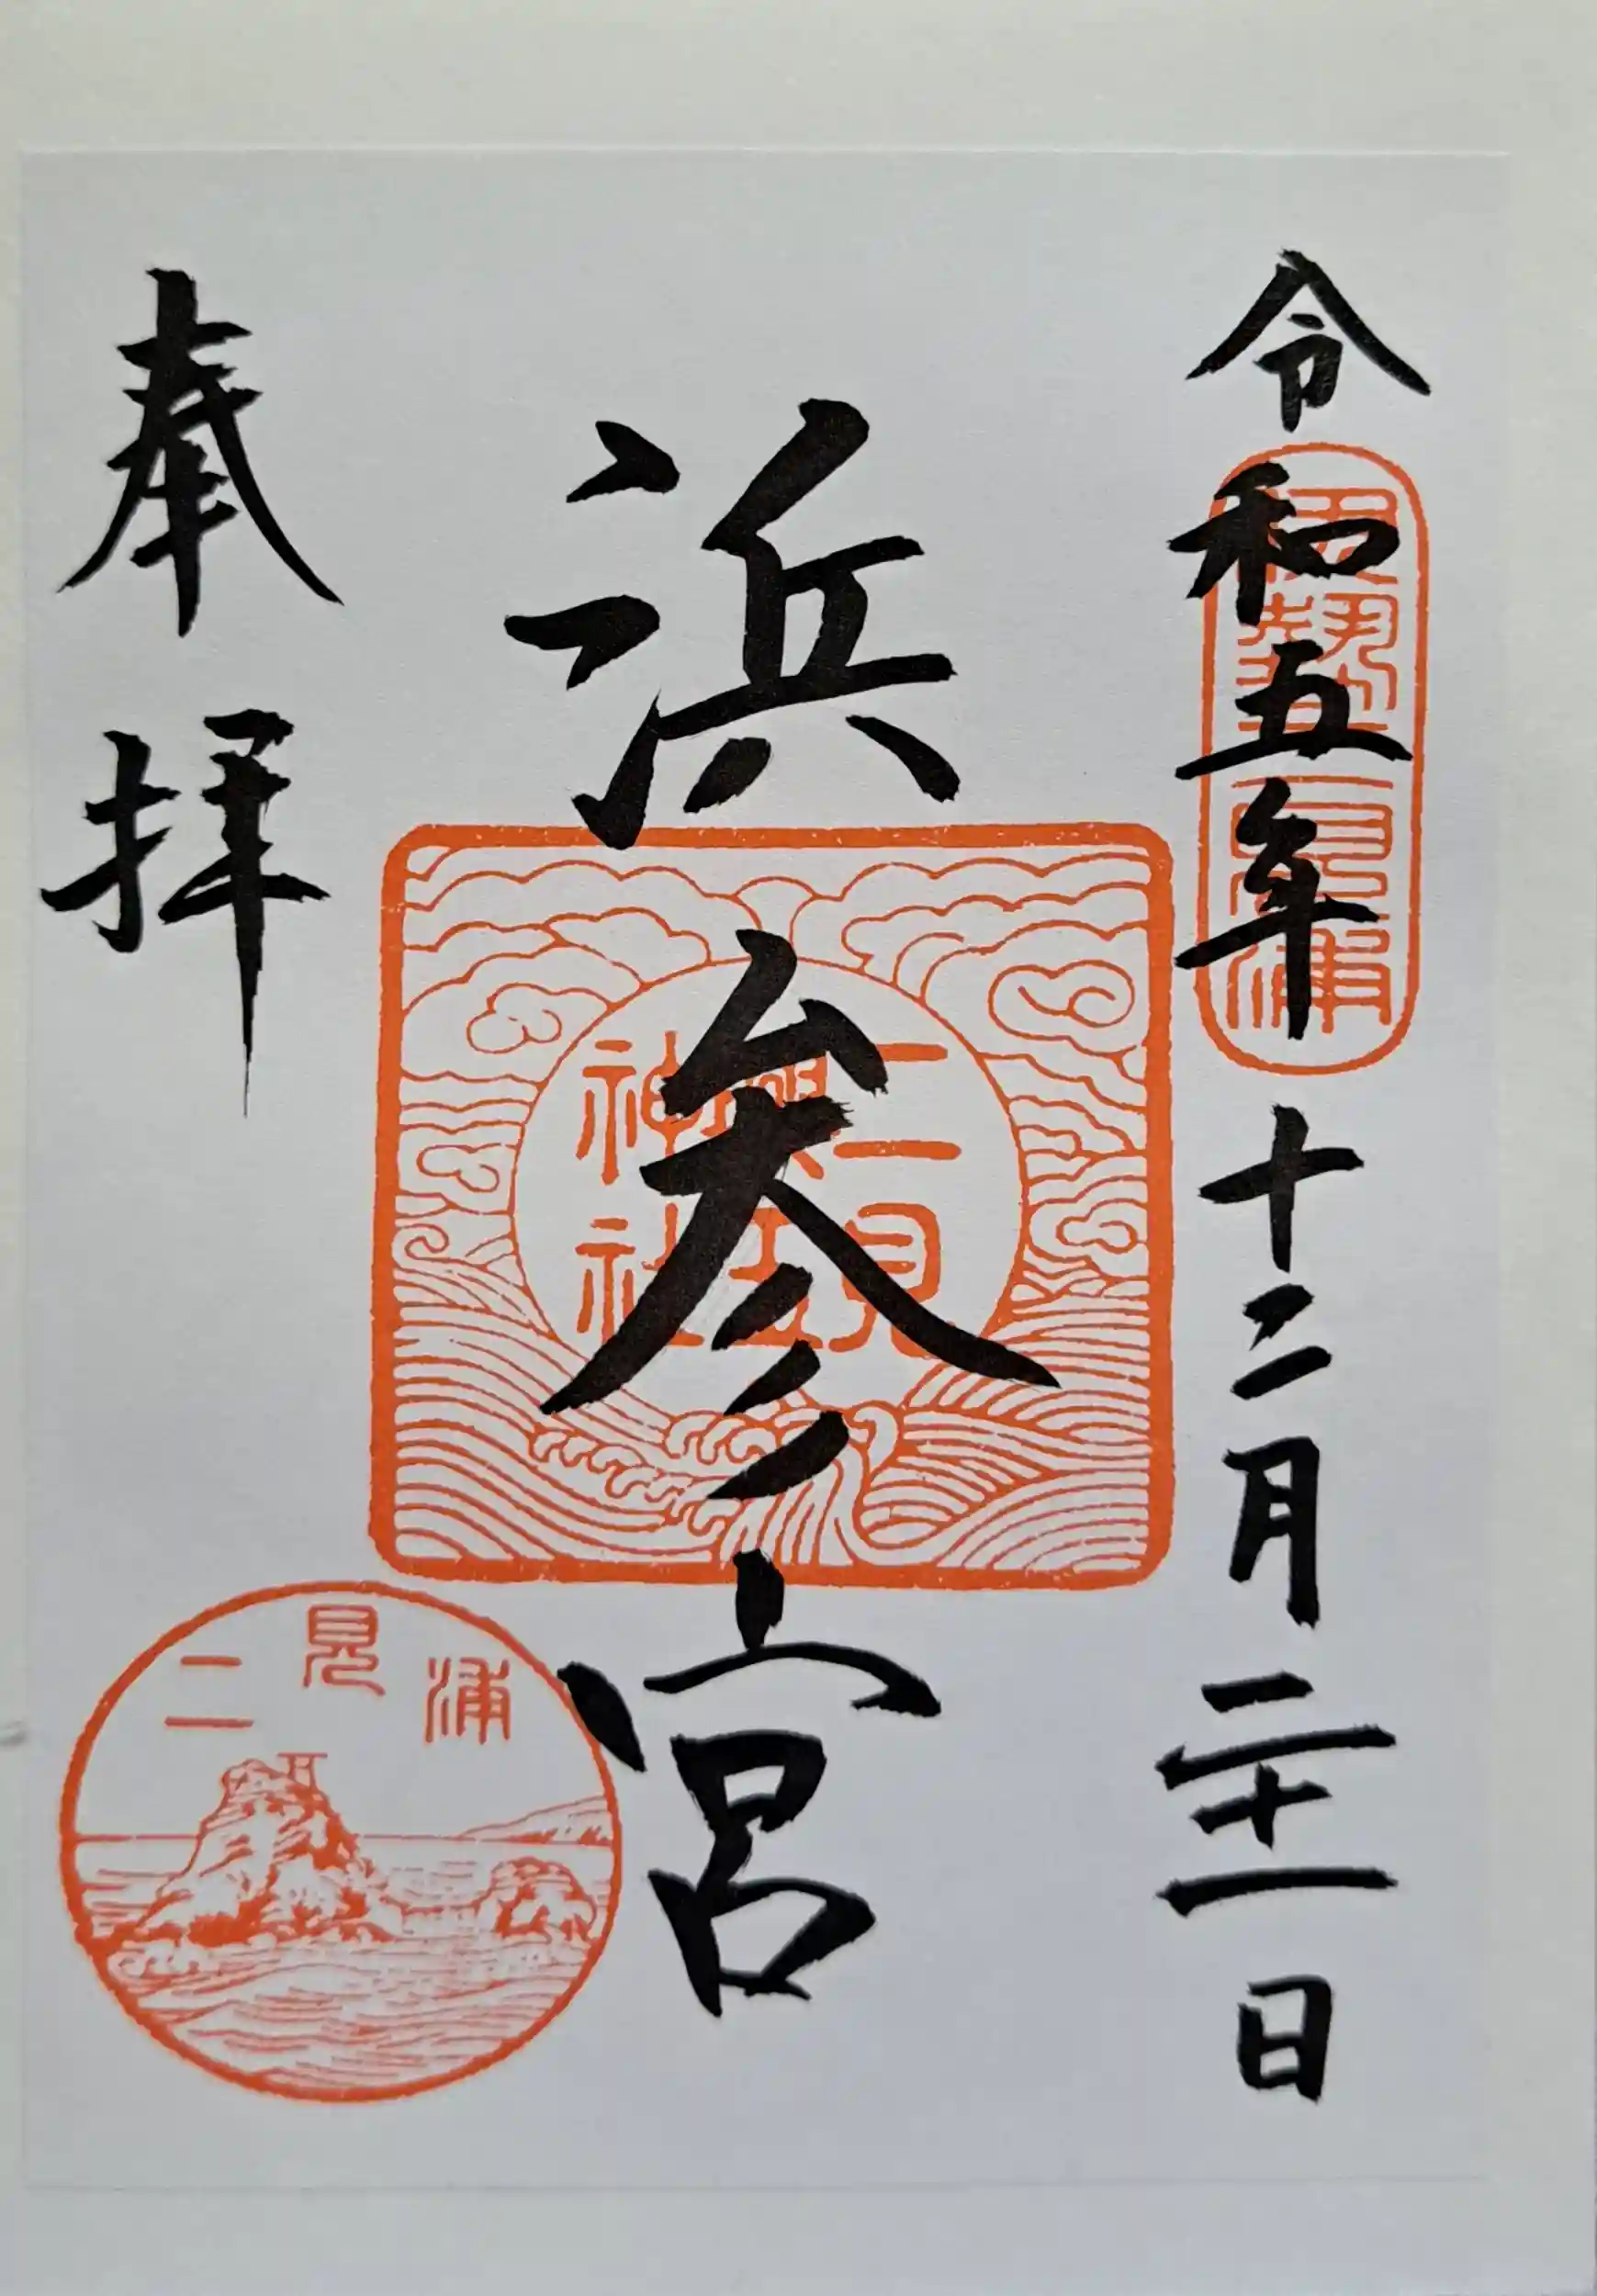 令和五年十二月二十一日
伊勢二見浦
浜参宮
二見
興玉
神社
奉拝
二見浦